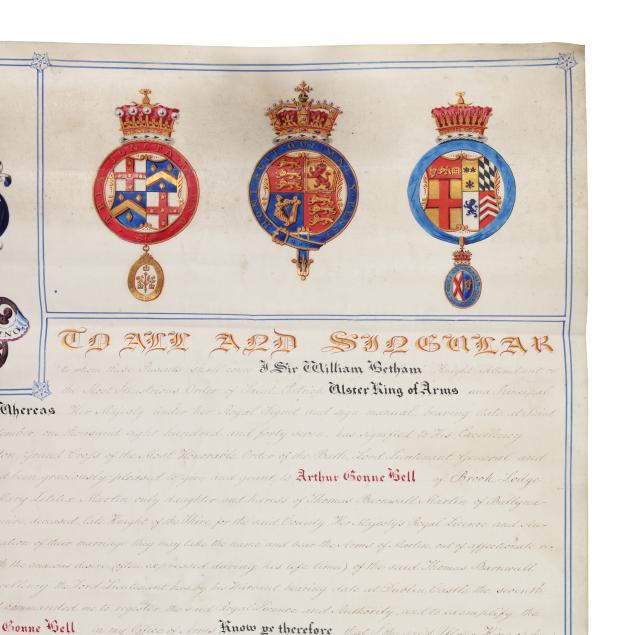 TO ALL AND SINGULAR
to whom these Presents shall come I Sir William Betham Knight Attendant on
the Most Illustrious Order of Saint Patrick Ulster King of Arms and Principal
Whereas Her Majesty under her Royal Signet and sign manual bearing date at Saint
ember, one thousand eight hundred and forty seven, has signified to His Excellency
Grand Cross of the Most Honorable Order of the Bath, Lord Lieutenant General and
been graciously pleased to give and grant to Arthur Gonne Bell of Brook Lodge
Mary Letitia Martin only daughter and heiress of Thomas Barnwall Martin of Ballyna
deceased, late Knight of the Shire for the said County, Her Majesty's Royal Licence and Au
ation of their marriage they may take the name and bear the Arms of Martin out of affectionate re
the anxious desire (often expressed during his life time) of the said Thomas Barnwall
cellency the Lord Lieutenant has by his Warrant bearing date at Dublin Castle the seventh
commanded me to register the said Royal Licence and Authority, and to exemplify the
Gonne Bell in my Office of Arms Know ye therefore that I the